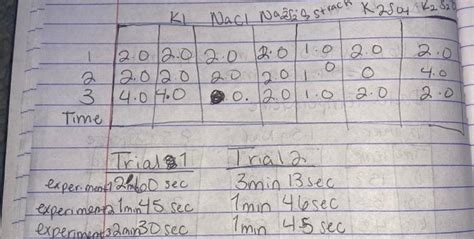 KI NaCl Na2S2O3 starch K2SO4 K2S2O
1 2.0 2.0 2.0 2.0 1.0 2.0 2.0
2 2.0 2.0 2.0 2.0 1.0 0 4.0
3 4.0 4.0 0. 2.0 1.0 2.0 2.0
Time
Trial 1 Trial 2
experiment1 sec 3min 13sec
experiment2 1min 45 sec 1min 46sec
experiment3 2min30 sec 1min 45 sec